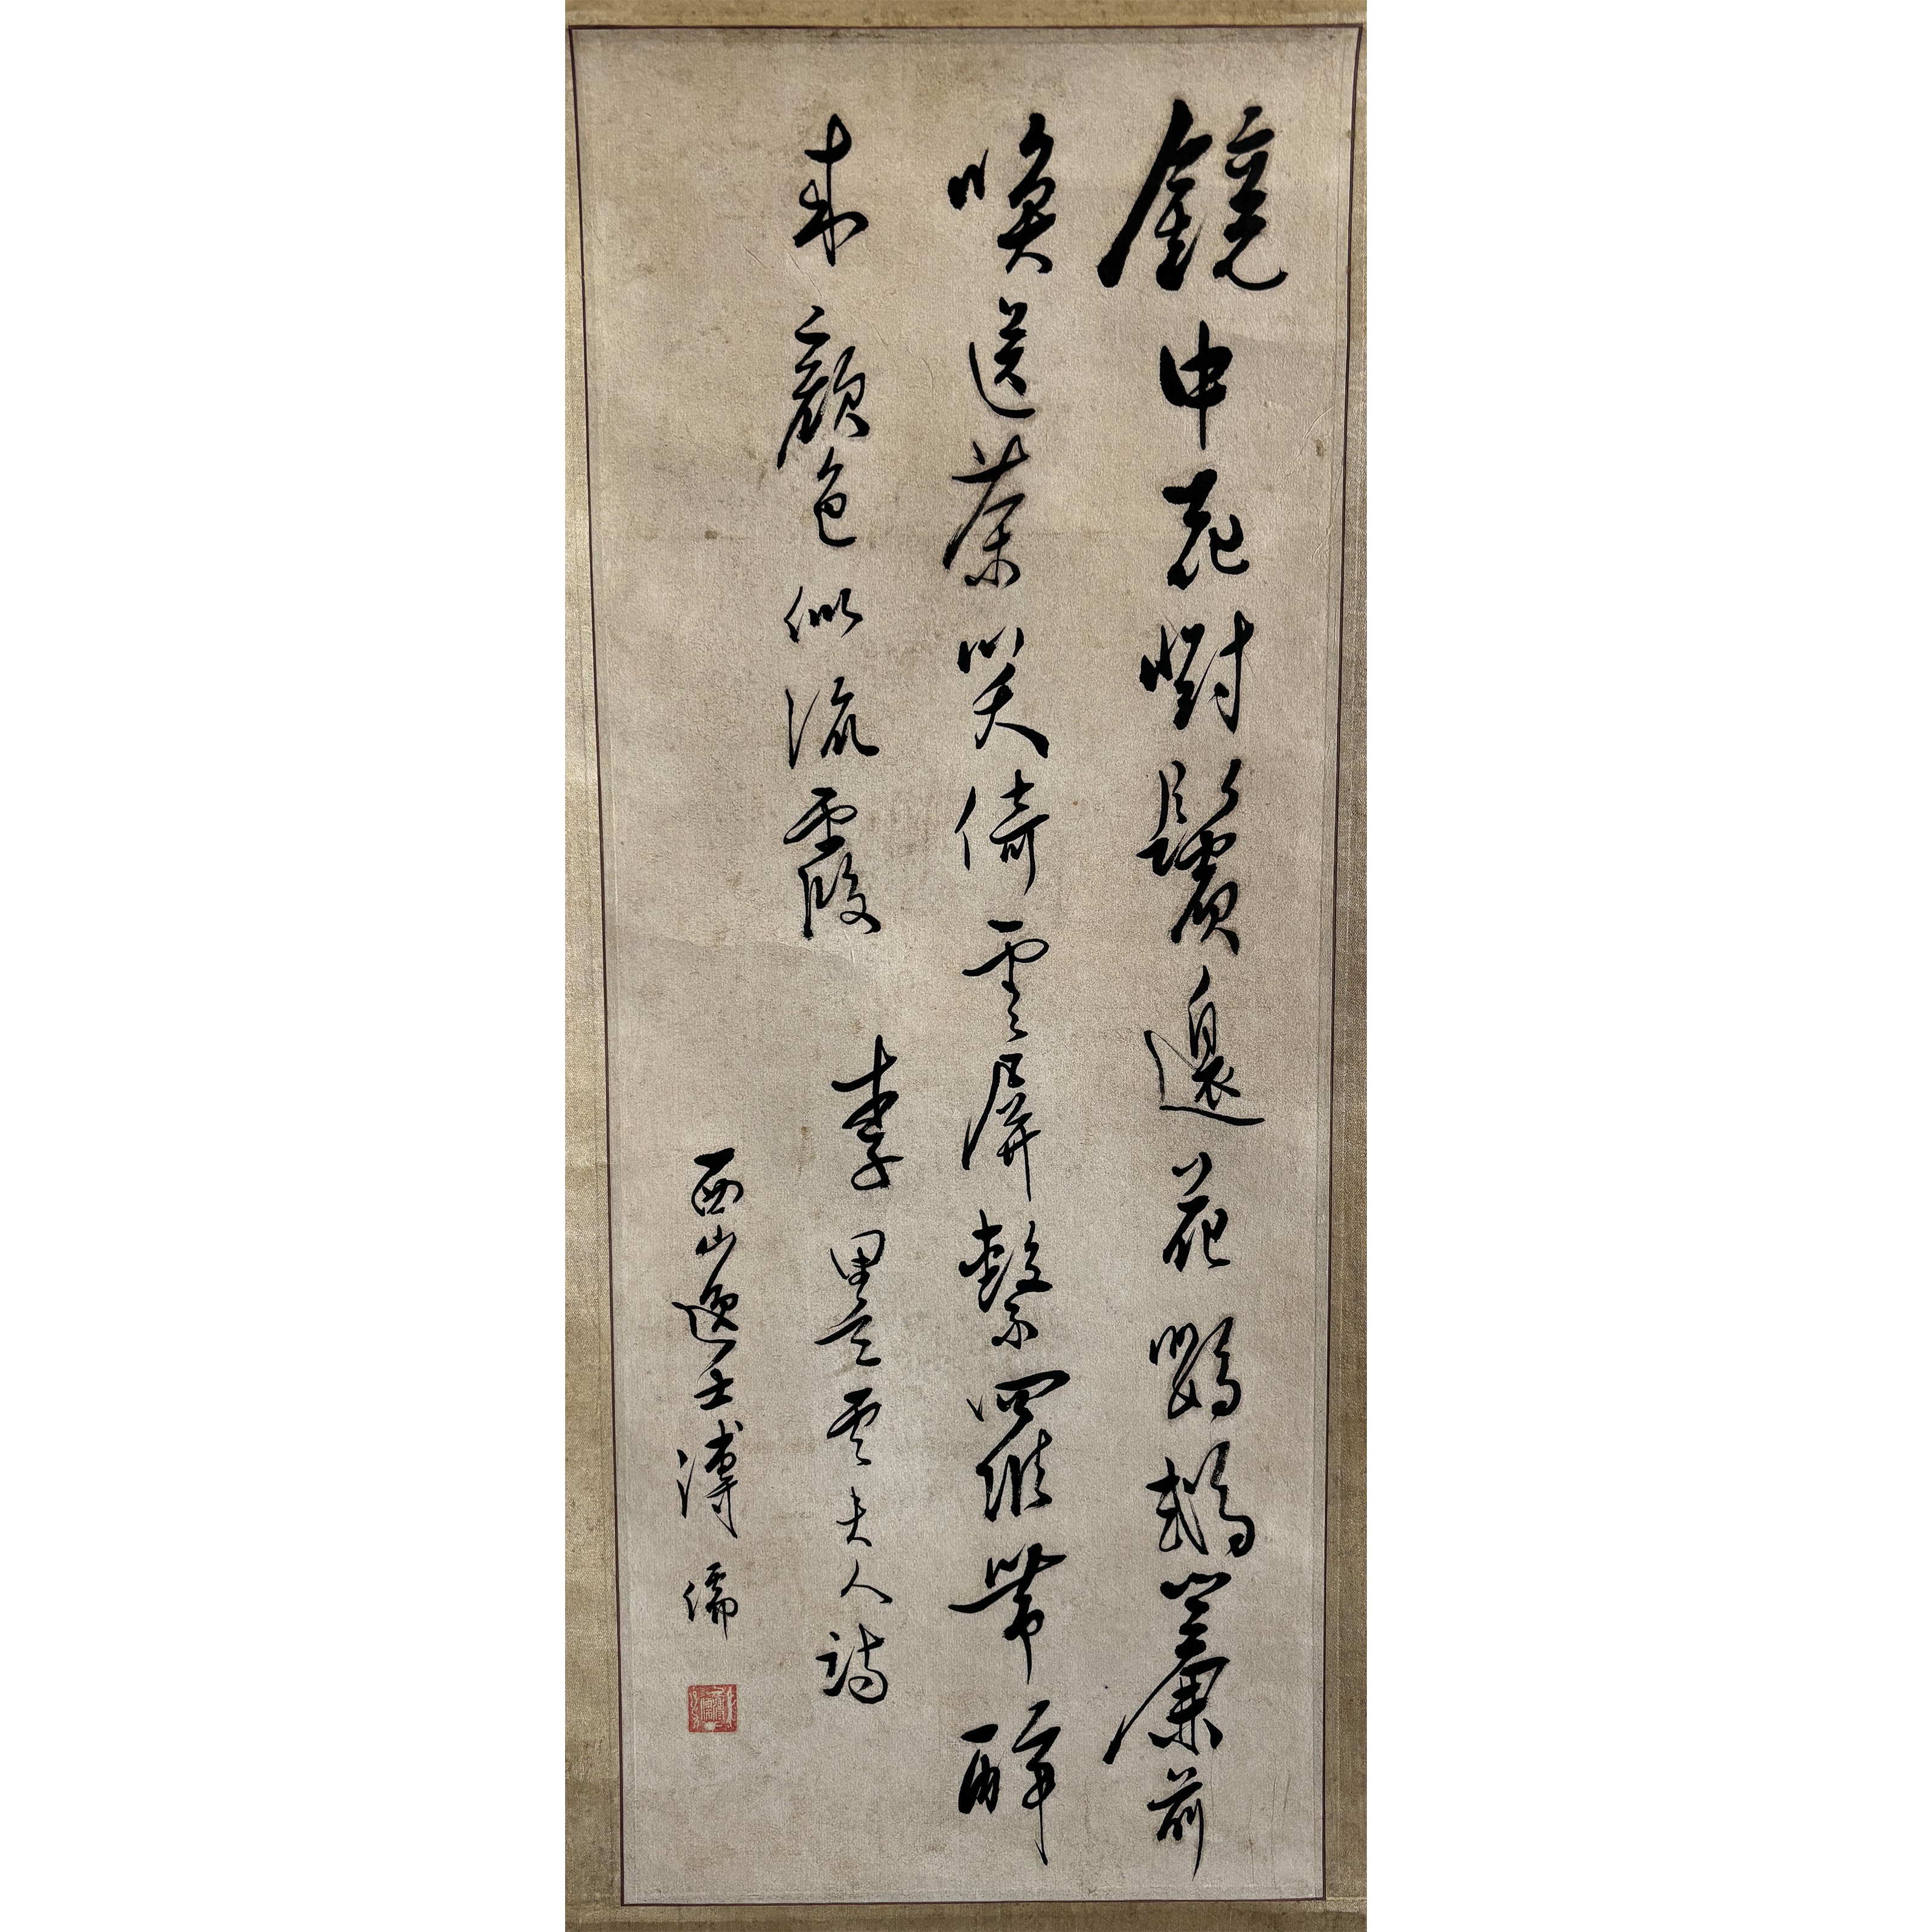 鏡中花對鬢邊花鸚鵡簾前
喚送茶笑倚雲屏繫羅帶醉
來顏色似流霞
李墨雲夫人詩
西山逸士溥儒